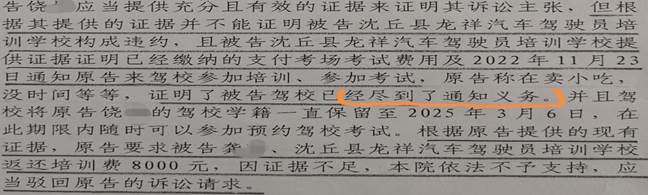 告饶 应当提供充分且有效的证据来证明其诉讼主张，但根
据其提供的证据并不能证明被告沈丘县龙祥汽车驾驶员培
训学校构成违约，且被告沈丘县龙祥汽车驾驶员培训学校提
供证据证明已经缴纳的支付考场考试费用及2022年11月23
日通知原告来驾校参加培训、参加考试，原告称在卖小吃，
没时间等等，证明了被告驾校已经尽到了通知义务。并且驾
校将原告饶 的驾校学籍一直保留至2025年3月6日，在
此期限内随时可以参加预约驾校考试。根据原告提供的现有
证据，原告要求被告龚 、沈丘县龙祥汽车驾驶员培训学校
返还培训费8000元，因证据不足，本院依法不予支持，应
当驳回原告的诉讼请求。